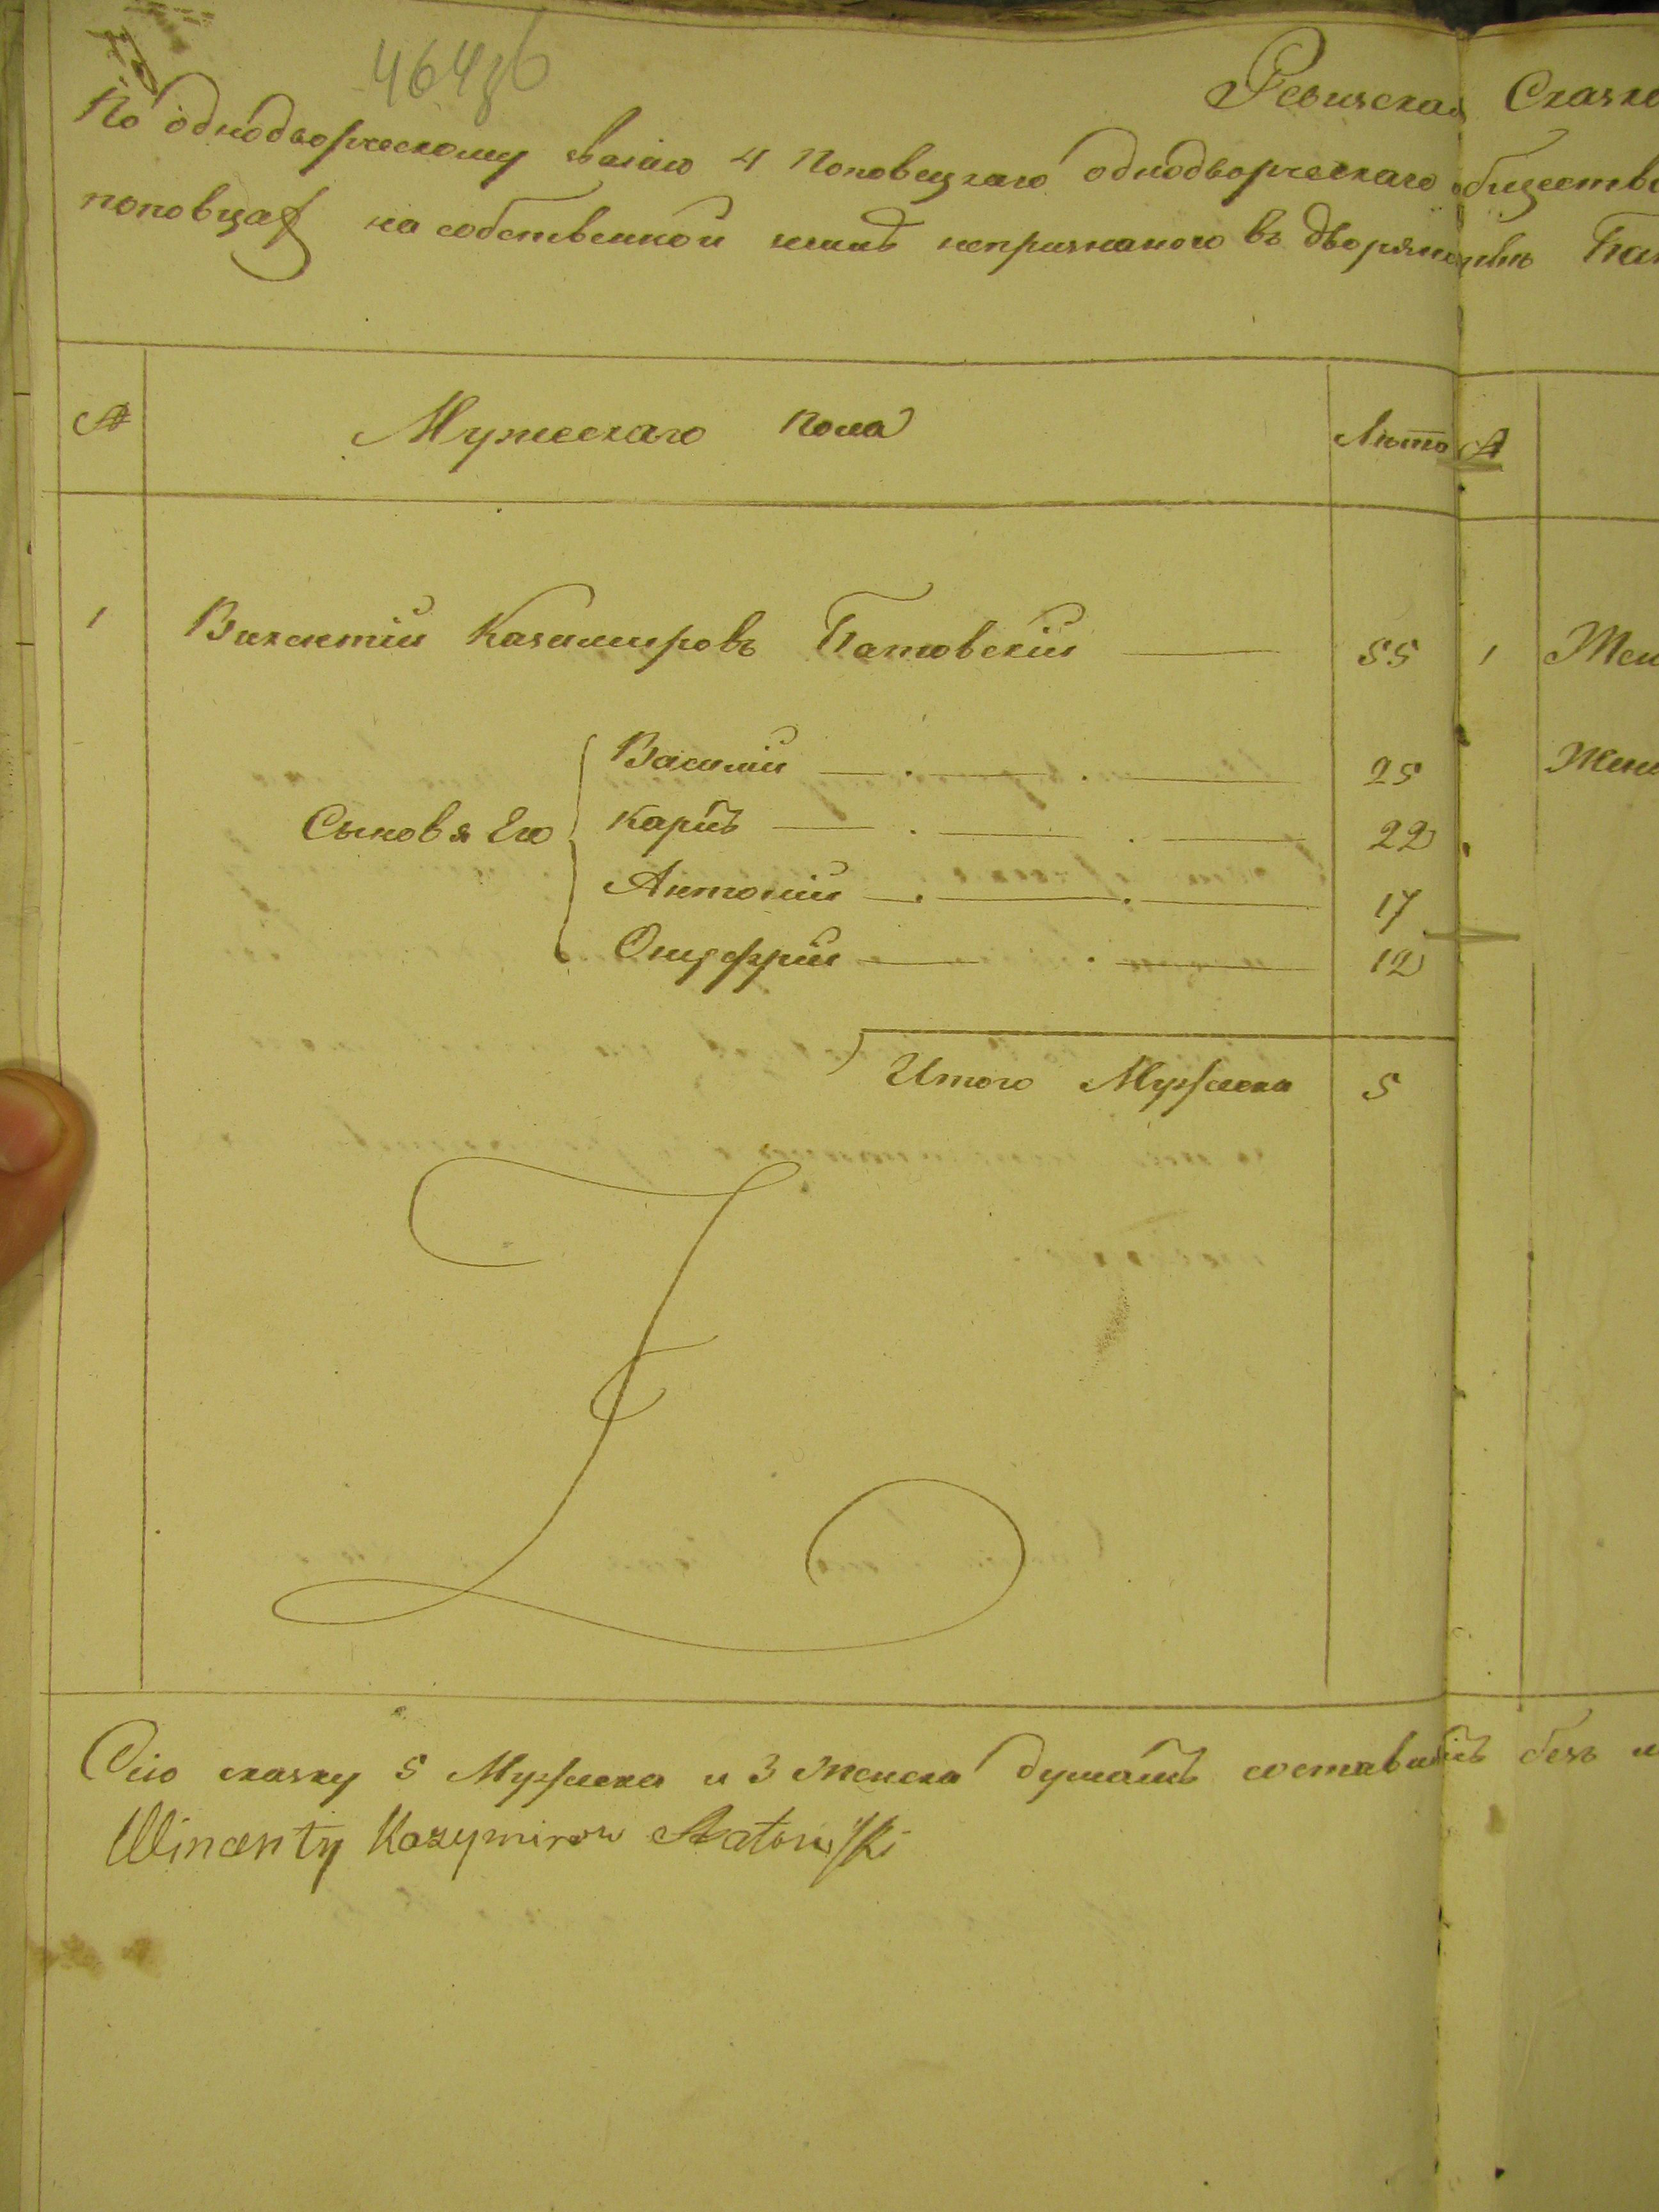 464 зв
Ревизская Сказка
По однодворческому званію 4 Поповецкаго однодворческаго обществ
поповцах на собственной непризнаного въ дворянствѣ
№ Мужескаго пола Лѣто №
1 Викентіи Казимировъ Батовскіи 55 1 Жен
Василіи 25 Жена
Сыновя Его Карпъ 22
Антоніи 17
Онуфріи 12
Итого Мужеска 5
Сію сказку 5 Мужеска и 3 Женска душамъ составилъ безъ
Wincenty Kazymirow Batowski